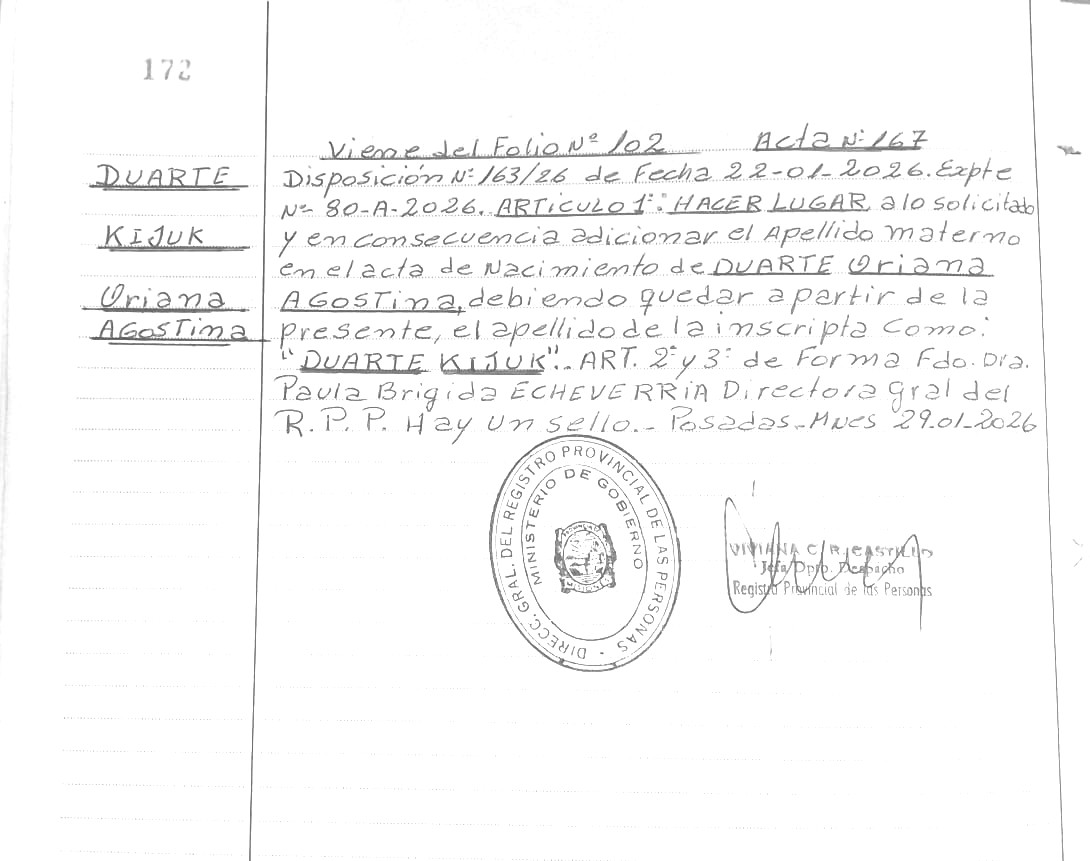 172
Viene del Folio Nº 102 Acta Nº 167
DUARTE
KIJUK
Oriana
AGOSTina
Disposición Nº 163/26 de Fecha 22-01-2026. Expte
Nº 80-A-2026. ARTICULO 1º: HACER LUGAR, a lo solicitado
y en consecuencia adicionar el Apellido materno
en el acta de Nacimiento de DUARTE Oriana
AGOSTina, debiendo quedar a partir de la
presente, el apellido de la inscripta como:
"DUARTE KIJUK".. ART. 2º y 3º de Forma Fdo. Dra.
Paula Brigida ECHEVERRIA Directora Gral del
R. P. P. Hay un sello.- Posadas-Mnes 29-01-2026
DIRECC. GRAL. DEL REGISTRO PROVINCIAL DE LAS PERSONAS -
MINISTERIO DE GOBIERNO
VIVIANA C. R. CASTILLO
Jefa Dpto. Despacho
Registro Provincial de las Personas